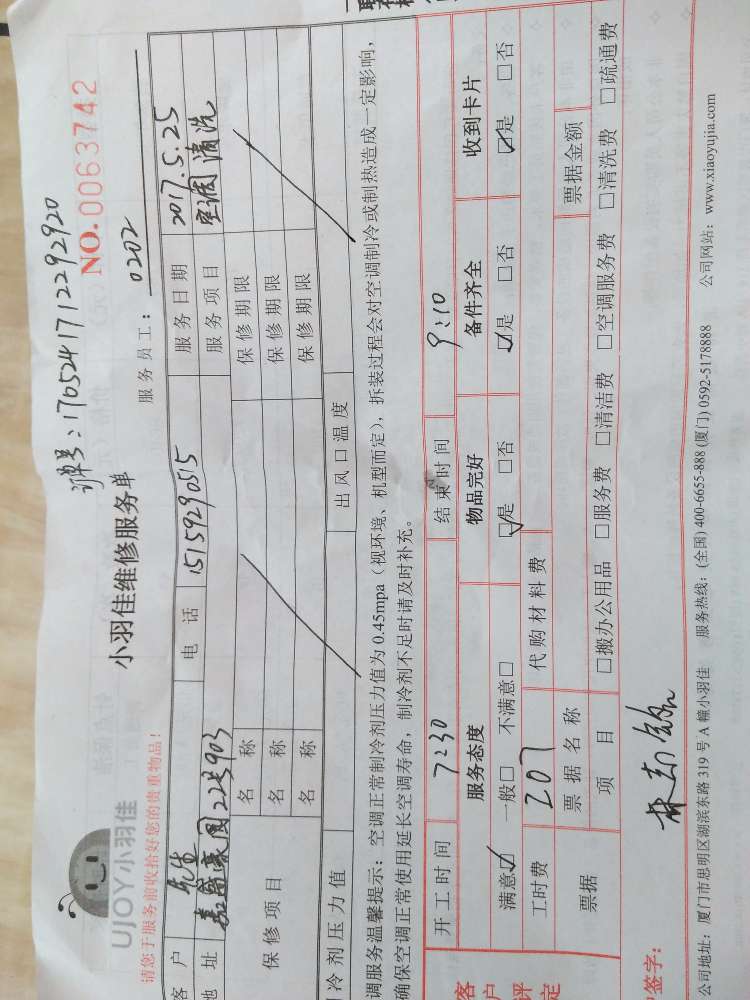 订单号：17052417122 92920
NO. 0063742
UJOY小羽佳
小羽佳维修服务单
请您于服务前收拾好您的贵重物品！
服务员工： 0202
客 户 先生 电 话 15159290515 服务日期 2017.5.25
地 址 嘉盛豪园22号903 服务项目 空调清洗
保修项目
名 称 保修期限
名 称 保修期限
名 称 保修期限
冷剂压力值 出风口温度
调服务温馨提示：空调正常制冷剂压力值为0.45mpa（视环境、机型而定），拆装过程会对空调制冷或制热造成一定影响，
确保空调正常使用延长空调寿命，制冷剂不足时请及时补充。
客户评定
开工时间 7:30 结束时间 9:10
服务态度 物品完好 备件齐全 收到卡片
满意☑ 一般□ 不满意□ ☑是 □否 ☑是 □否 ☑是 □否
工时费 207 代购材料费
票据 票据名称 票据金额
项 目 □搬办公用品 □服务费 □清洁费 □空调服务费 □清洗费 □疏通费
签字：
公司地址：厦门市思明区湖滨东路319号A幢小羽佳 服务热线：(全国) 400-6655-888 (厦门) 0592-5178888 公司网站：www.xiaoyujia.com